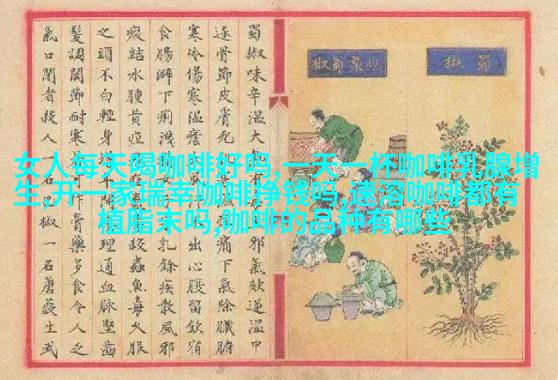 女人每天喝咖啡好吗,一天一杯咖啡乳腺增
生,开一家瑞幸咖啡挣钱吗,速溶咖啡都有
植脂末吗,咖啡的品种有哪些
蜀椒
蜀椒味辛溫大邪氣欬逆溫中
逐骨節皮膚死痛下氣除臟腑
寒冷傷寒溫瘧出心腹留飲宿
食腸澼下痢洩乳餘疾散風邪
瘕結水腫黃疸蟲魚毒久服
之頭不白輕身理通血脈堅齒
髮調關節耐寒作膏藥多食令人乏
氣口閉者殺人椒一名生武